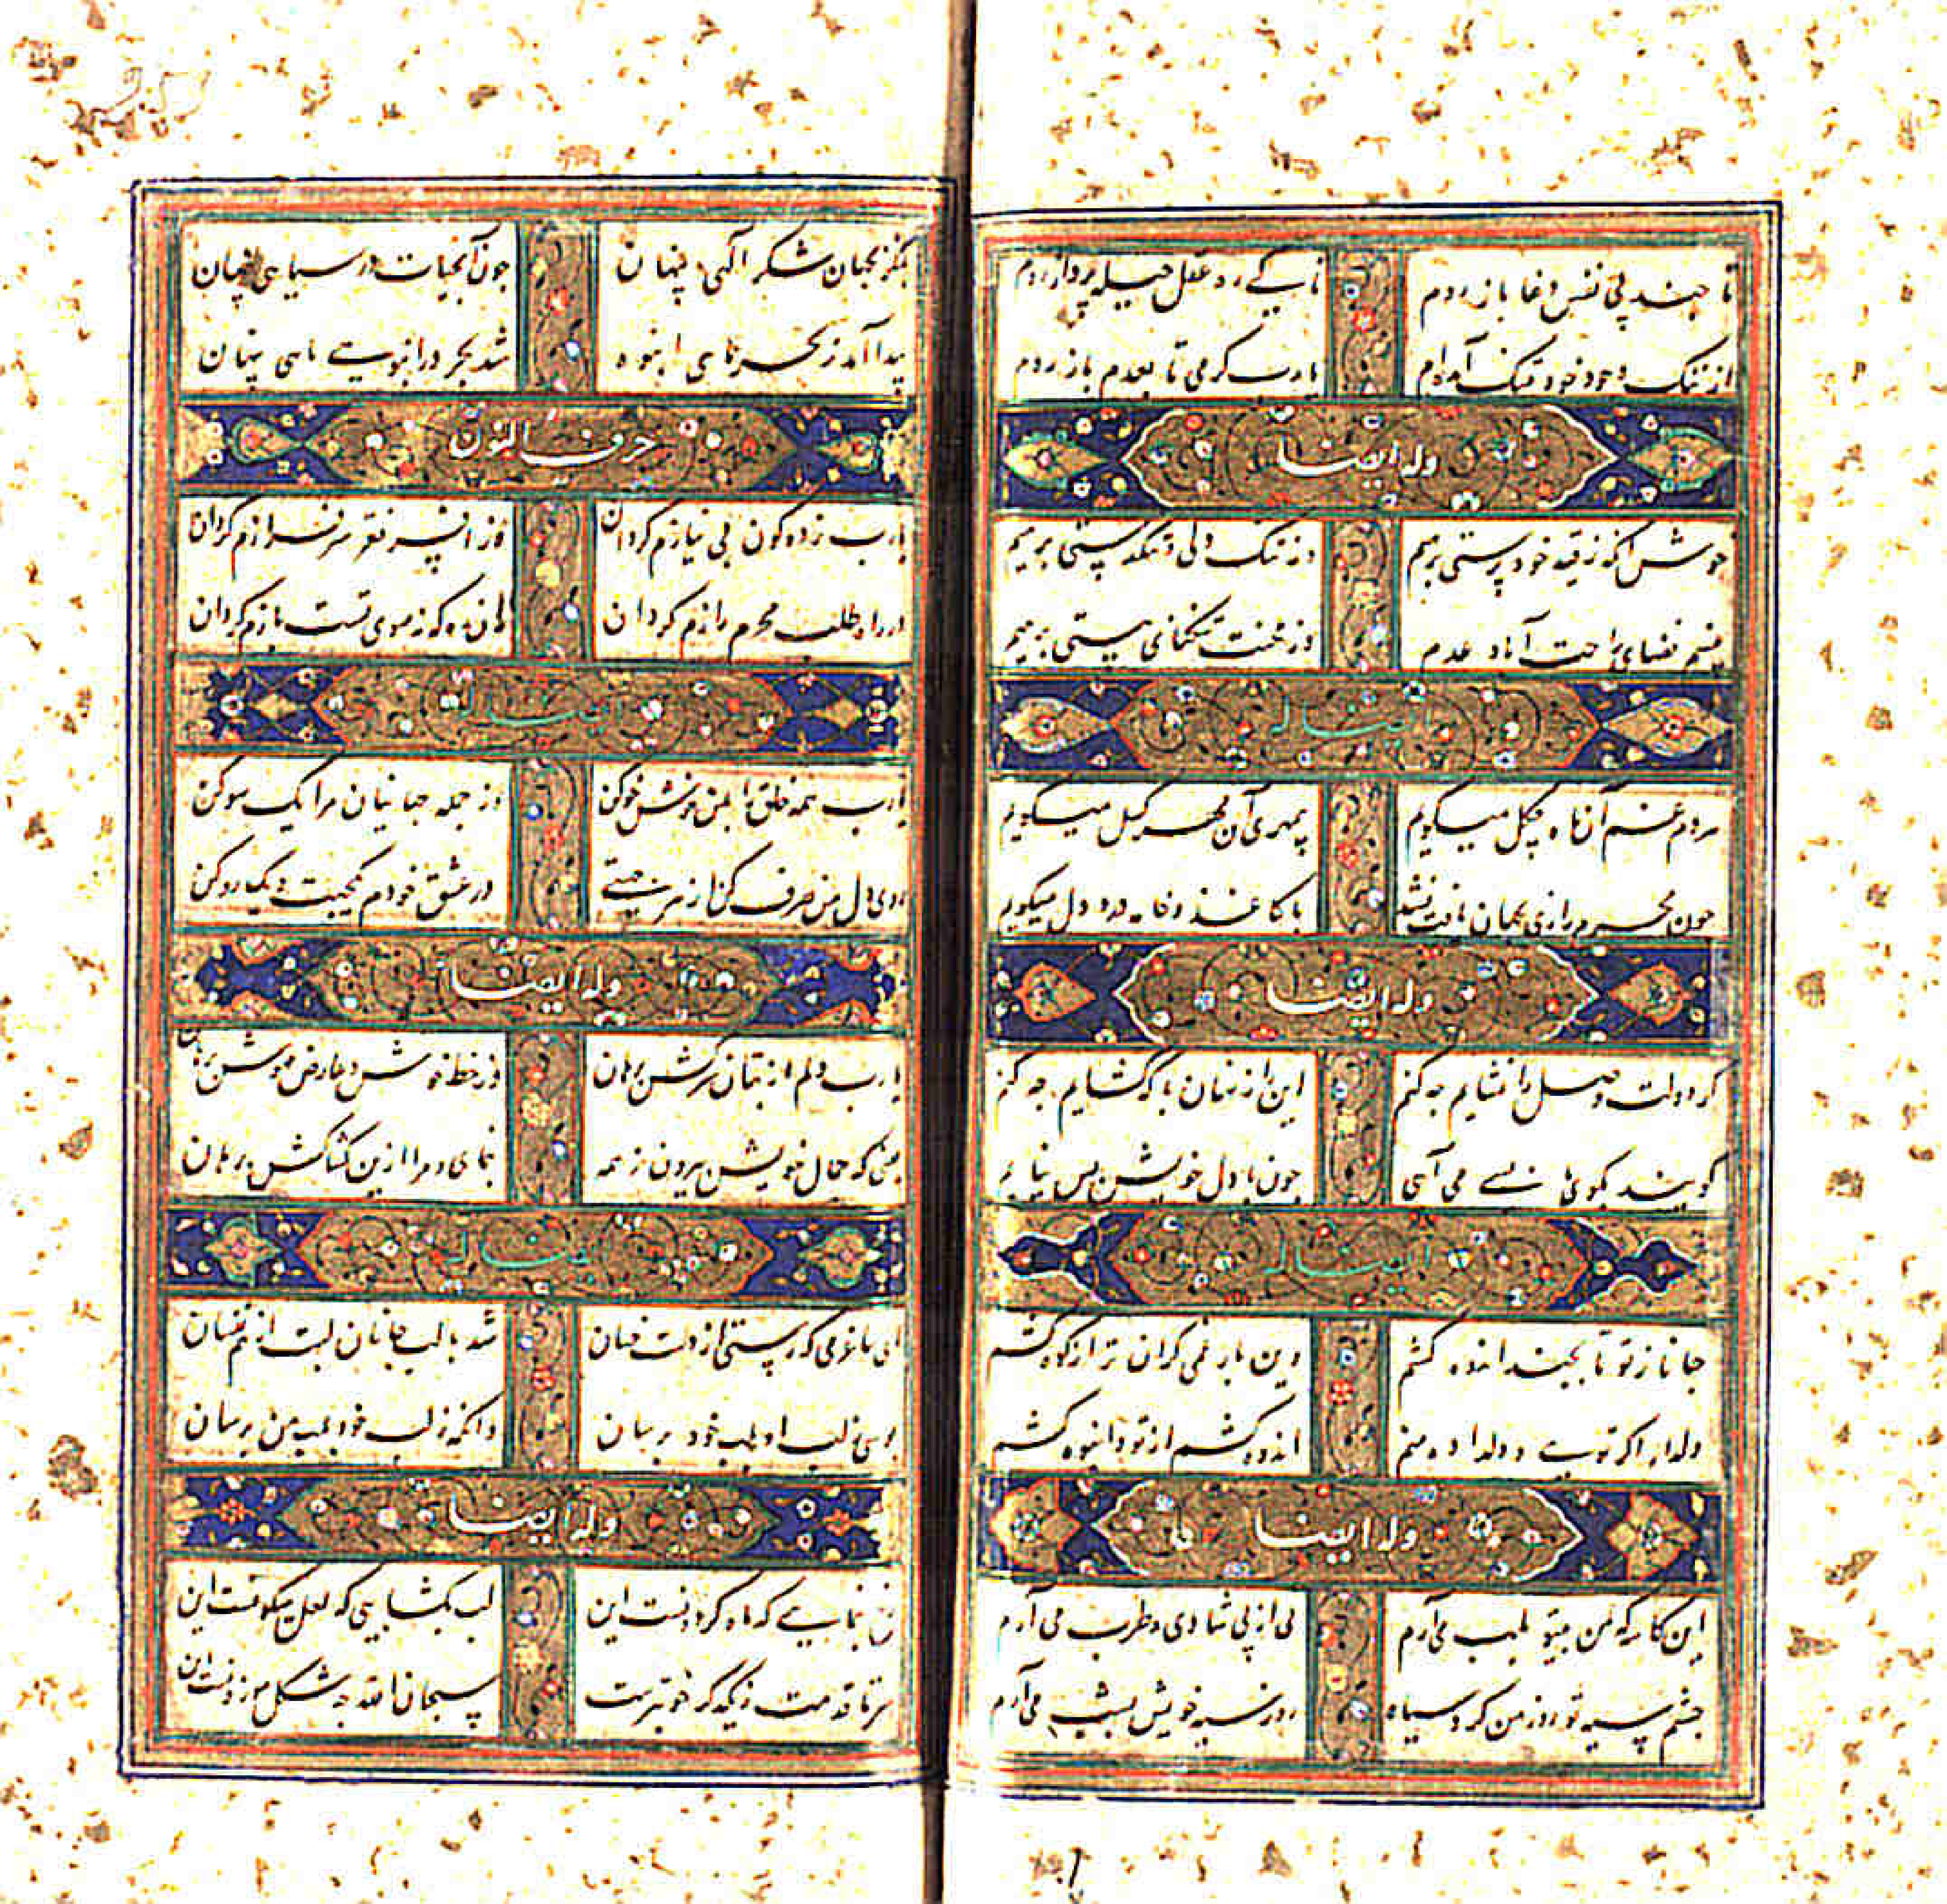 تا چند پی نفس دغا باز روم
تا کے ره عقل حیله پرداز روم
از ننک وجود خود بتنک آمده‌ام
یارب کرمی تا بعدم باز روم
وله ایضا
خوش آنکه ز قید خود پرستی برهیم
وز ننک دلی و تنکدستی برهیم
فضای راحت آباد عدم
وز محنت تنکنای هستی برهیم
ایضا له
مردم غم آن ماه چکل میکویم
بیمهری آن مهر کسل میکویم
چون محرم رازی بجهان یافت نشد
با کاغذ و خامه درد دل میکویم
وله ایضا
کر دولت وصل را نشایم چه کنم
این راز نهان با که کشایم چه کنم
کویند بکوی ما بسے می آیی
چون با دل خویش بس نیایم
ایضا له
جانا ز تو تا بچند اندوه کشم
وین بار غمی کران تر از کوه کشم
دلدار اکر تویے و دلداده منم
اندوه کشم از تو و انبوه کشم
وله ایضا
این کاسه که من بیتو بلب می آرم
نی از پی شادی و طرب می آرم
چشم سیه تو روز من کرد سیاه
روز سیه خویش بشب می آرم
بنکر بجهان سر الهی پنهان
چون آب حیات در سیاهی پنهان
پیدا آمد ز بحر ماهی انبوه
شد بحر در انبوهیے ماهی پنهان
حرف النون
یارب ز دو کون بی نیازم کردان
وز افسر فقر سرفرازم کردان
در راه طلب محرم رازم کردان
زان ره که نه سوی تست بازم کردان
ایضا له
یارب همه خلق را بمن خوش خو کن
وز جمله جهانیان مرا یک سو کن
روی دل من صرف کن از هر جهتے
در عشق خودم یکجهت و یک رو کن
وله ایضا
یارب دلم از بتان سرکش برهان
وز خط خوش و عارض مهوش برهان
یعنی که جمال خویش بیرون ز همه
بنمای و مرا ازین کشاکش برهان
ایضا له
ای ساغر می که رستی از دست خسان
شد با لب جانان لبت از هم نفسان
بوسی ز لب او بلب خود برسان
وانکه ز لب خود بلب من برسان
وله ایضا
رخ بنمایے که ماه کردونست این
لب بکشایی که لعل میکونست این
سر تا قدمت ز یکدکر خوبترست
سبحان الله چه شکل موزونست این